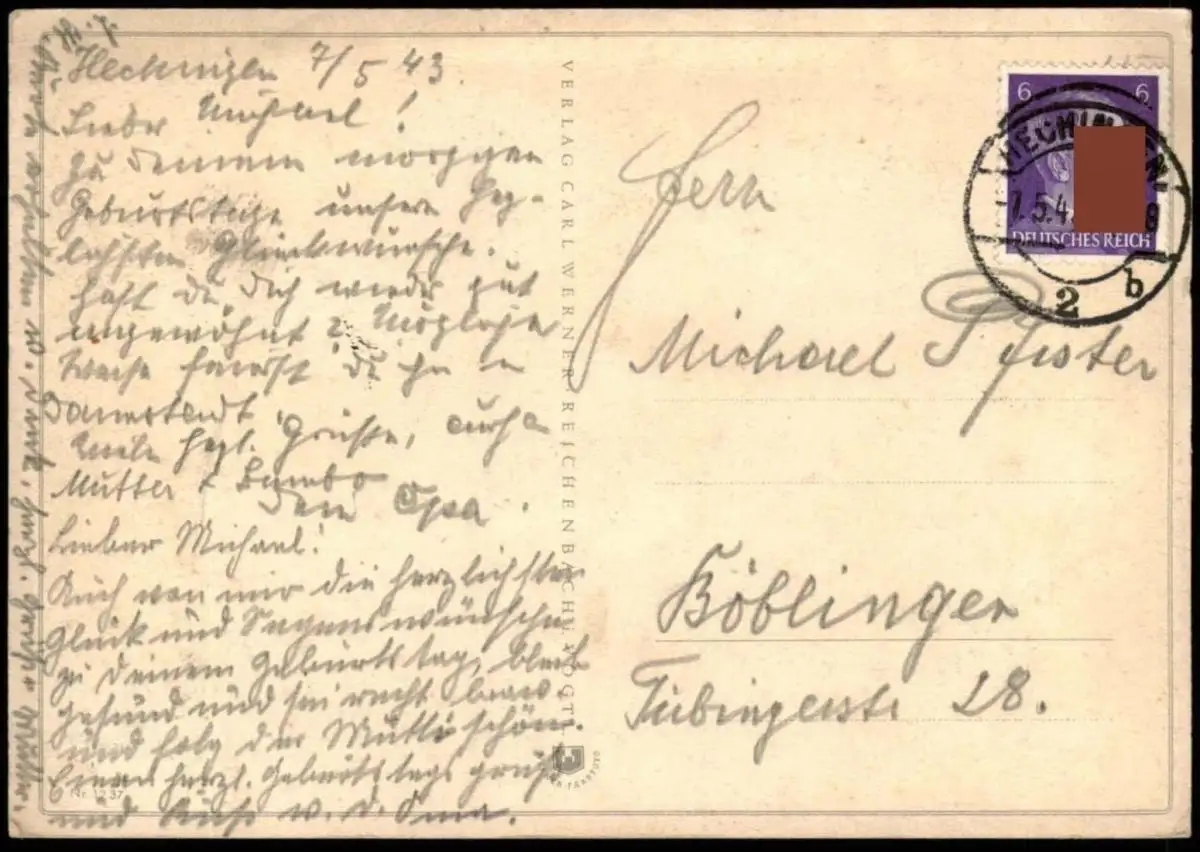 Hechingen 7/5 43.
Lieber Michael!
Zu deinem morgigen
Geburtstage unsere herz-
lichsten Glückwünsche.
Hast du dich wieder gut
angewöhnt? Möglicher
Weise fährst du in
Viele herzl. Grüße, auch a
Mutter + Bimbo
Dein Opa.
Lieber Michael!
Auch von mir die herzlichsten
Glück und Segenswünsche
zu deinem Geburtstag, bleib
gesund und sei recht brav
und folg der Mutti schön.
Einen herzl. Geburtstagsgruß
und Kuß v. d. Oma.
VERLAG CARL WERNER, REICHENBACH I. VOGTL.
Nr. 1237
6 6
DEUTSCHES REICH
HECHINGEN
7.5.4 8
2 b
Herrn
Michael Pfister
Böblingen
Tübingerstr. 28.